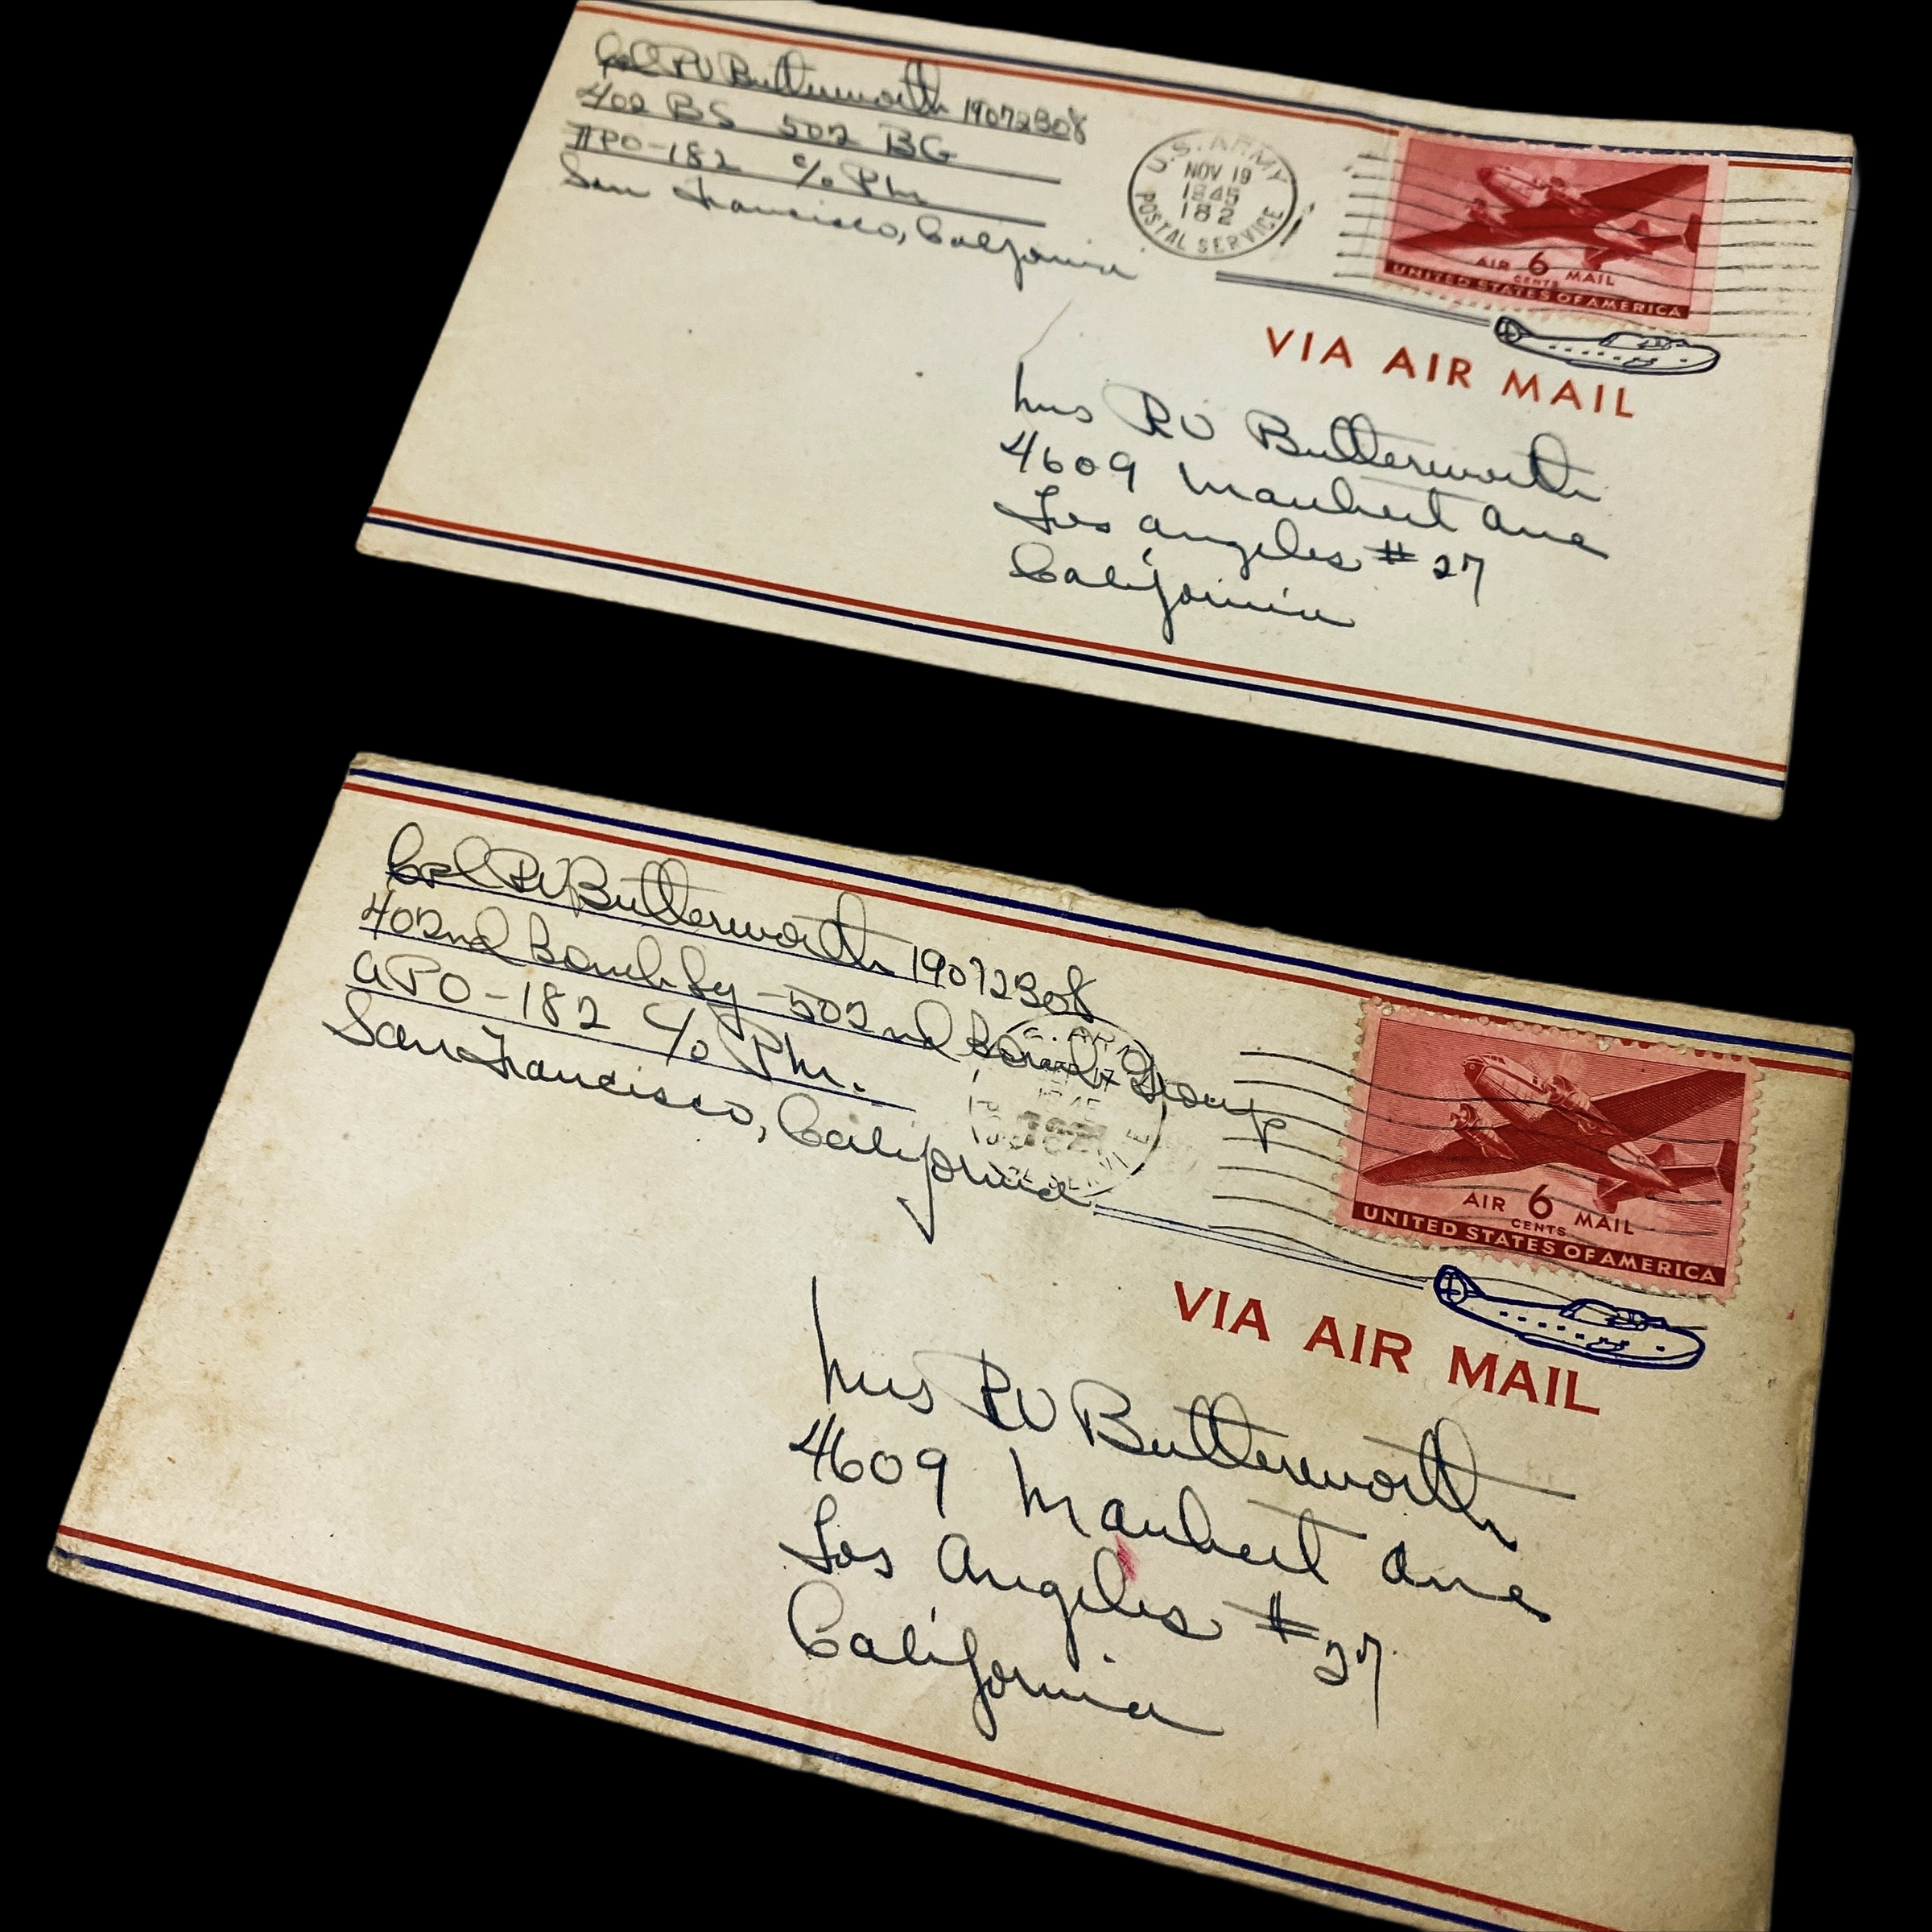 Cpl RV Butterworth 19072308
402 BS 502 BG
APO-182 c/o Pm
San Francisco, California
U.S. ARMY
NOV 19
1945
182
POSTAL SERVICE
AIR 6 MAIL
CENTS
UNITED STATES OF AMERICA
VIA AIR MAIL
Mrs RV Butterworth
4609 Maubert Ave
Los Angeles #27
California
Cpl RV Butterworth 19072308
402nd Bomb Sq - 502nd Bomb Group
APO-182 c/o Pm.
San Francisco, California
AIR 6 MAIL
CENTS
UNITED STATES OF AMERICA
VIA AIR MAIL
Mrs RV Butterworth
4609 Maubert Ave
Los Angeles #27
California